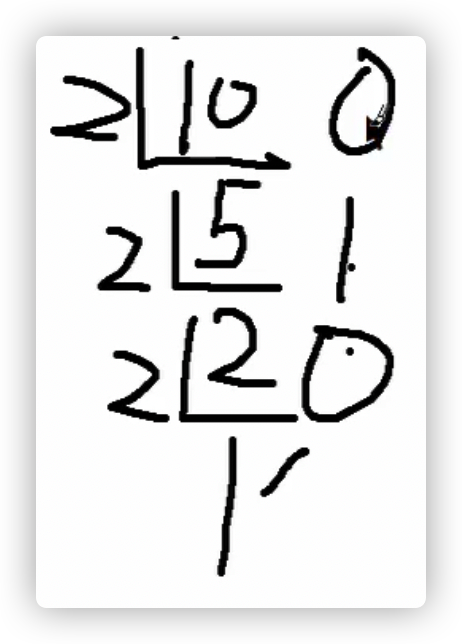 2 10 0
2 5 1
2 2 0
1